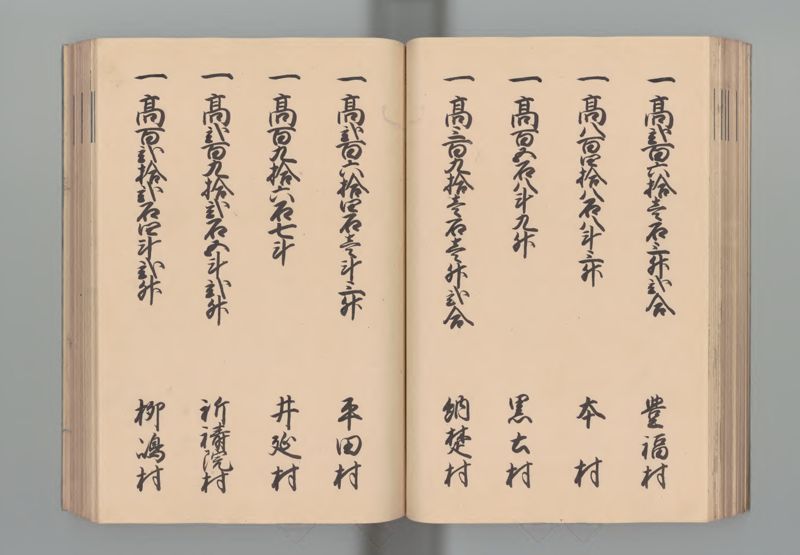 一 高弐百六拾壱石三升弐合 豊福村
一 高八百四拾八石八斗三升 本村
一 高百五石八斗九升 黒土村
一 高三百九拾壱石壱升弐合 納楚村
一 高弐百六拾四石壱斗三升 平田村
一 高百九拾六石七斗 井延村
一 高弐百九拾弐石五斗弐升 祈禱院村
一 高百弐拾弐石四斗弐升 柳嶋村